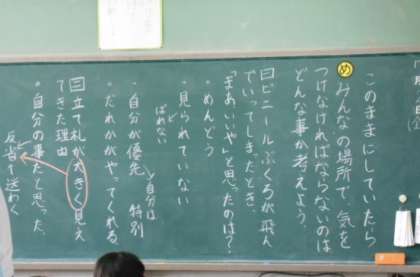 このままにしていたら
め みんなの場所で、気を
つけなければならないのは
どんな事か考えよう。
ビニールぶくろが飛ん
でいってしまったとき、
「まあいいや」と思ったのは?
・めんどう
・見られていない
ばれない
・自分が優先 → 自分は
特別
・だれかがやってくれる。
立て札が大きく見え
てきた理由
・自分の事だと思った。
反省を送わく